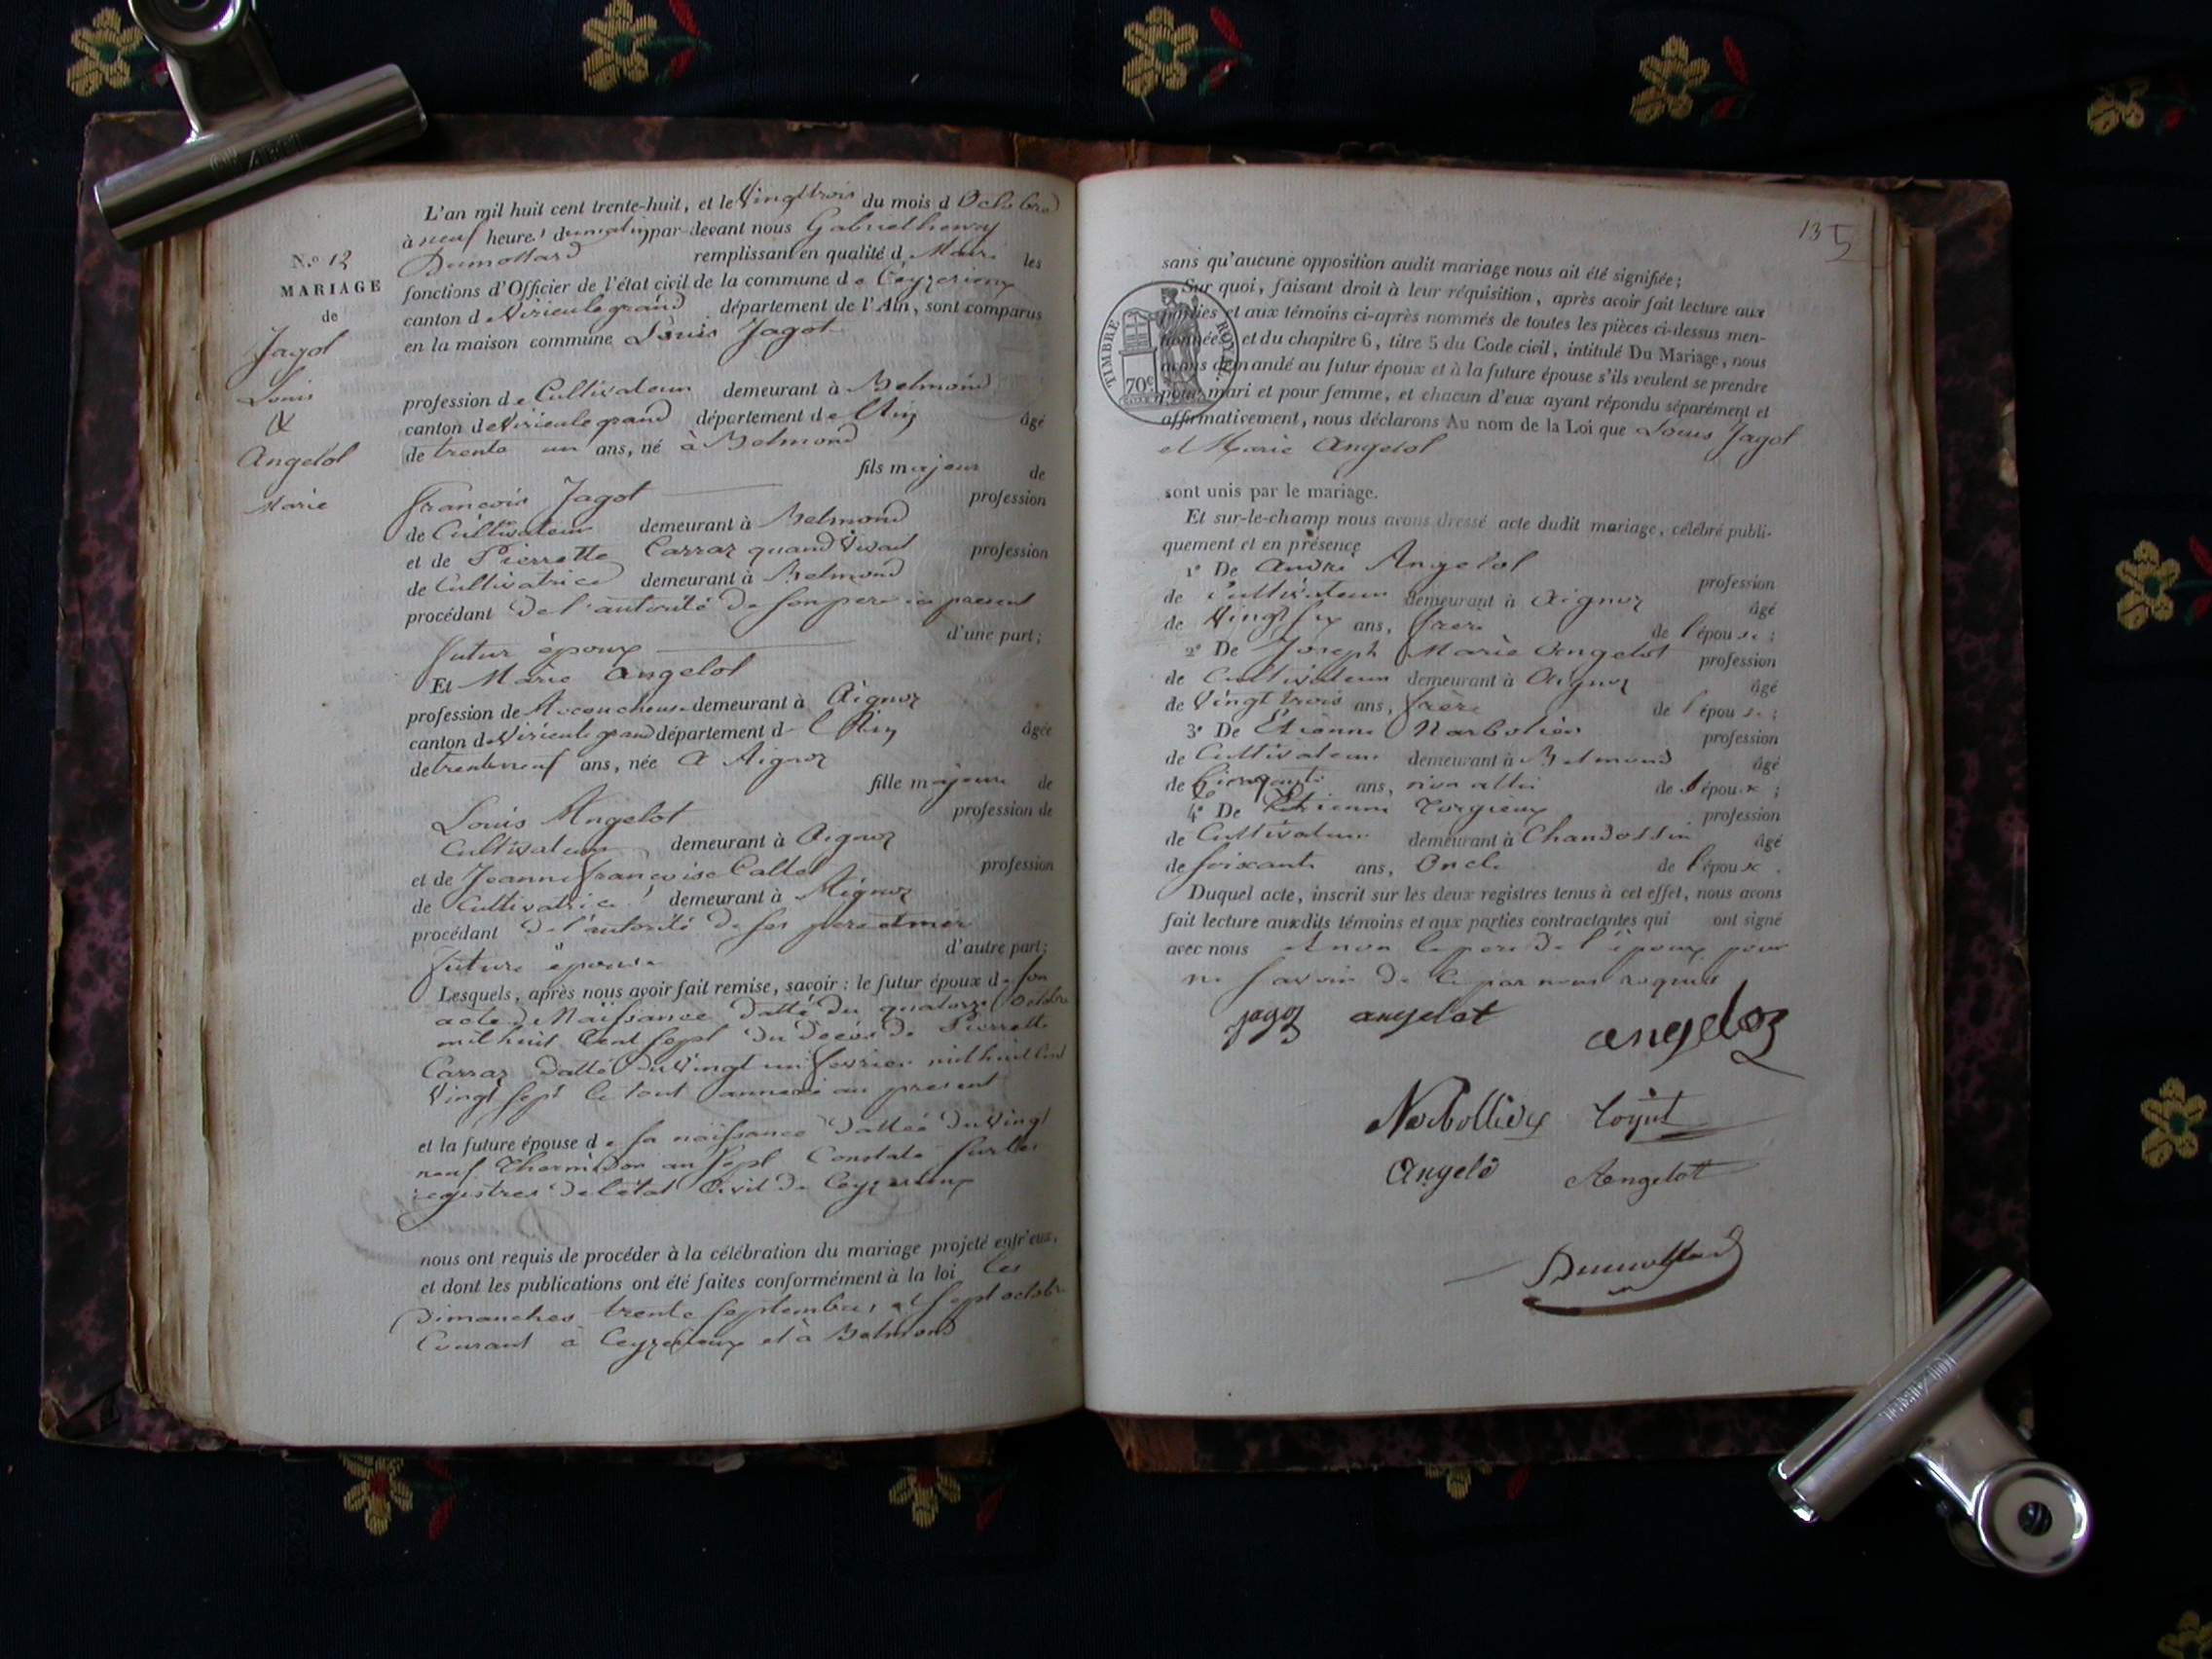 L'an mil huit cent trente-huit, et le Vingt trois du mois d Octobre
à neuf heure du matin par-devant nous Gabriel henry
Dumollard remplissant en qualité d Maire les
N.º 12
MARIAGE
de
Jagot
Louis
&
Angelot
Marie
fonctions d'Officier de l'état civil de la commune de Ceyzerieux
canton de Virieulegrand département de l'Ain, sont comparus
en la maison commune Louis Jagot
profession de Cultivateur demeurant à Belmond
canton de Virieulegrand département de l'Ain âgé
de trente un ans, né à Belmond
fils majeur de
François Jagot profession
de Cultivateur demeurant à Belmond
et de Pierrette Carraz quand Vivait profession
de Cultivatrice demeurant à Belmond
procédant de l'autorité de son pere ici present
d'une part;
futur époux
Et Marie Angelot
profession de Accoucheuse demeurant à Aignoz
canton de Virieulegrand département d l'Ain âgée
de trente neuf ans, née A Aignoz
fille majeure de
Louis Angelot profession de
Cultivateur demeurant à Aignoz
et de Jeanne françoise Callet profession
de Cultivatrice demeurant à Aignoz
procédant de l'autorité de ses pere et mere
d'autre part;
future épouse
Lesquels, après nous avoir fait remise, savoir: le futur époux de son
acte de Naissance datté du quatorze Octobre
mil huit Cent sept du Deces de Pierrette
Carraz datté du Vingt un fevrier mil huit Cent
Vingt sept le tout annexé au present
et la future épouse de sa naissance dattée du Vingt
neuf Thermidor an Sept Constaté sur les
registres de l'état Civil de Ceyzerieux
nous ont requis de procéder à la célébration du mariage projeté entr'eux,
et dont les publications ont été faites conformément à la loi les
Dimanches trente septembre, et sept octobre
Courant à Ceyzerieux et à Belmond
135
sans qu'aucune opposition audit mariage nous ait été signifiée;
Sur quoi, faisant droit à leur réquisition, après avoir fait lecture aux
parties et aux témoins ci-après nommés de toutes les pièces ci-dessus men-
tionnées, et du chapitre 6, titre 5 du Code civil, intitulé Du Mariage, nous
avons demandé au futur époux et à la future épouse s'ils veulent se prendre
pour mari et pour femme, et chacun d'eux ayant répondu séparément et
affirmativement, nous déclarons Au nom de la Loi que Louis Jagot
et Marie Angelot
TIMBRE ROYAL.
70c
sont unis par le mariage.
Et sur-le-champ nous avons dressé acte dudit mariage, célébré publi-
quement et en présence
1º De André Angelot profession
de Cultivateur demeurant à Aignoz âgé
de Vingt six ans, frere de l'épouse;
2º De Joseph Marie Angelot profession
de Cultivateur demeurant à Aignoz âgé
de Vingt trois ans, frère de l'épouse;
3º De Etienne Narbolier profession
de Cultivateur demeurant à Belmond âgé
de Cinquante ans, non allié de l'époux;
4º De Etienne profession
de Cultivateur demeurant à Chandossin âgé
de soixante ans, Oncle de l'époux.
Duquel acte, inscrit sur les deux registres tenus à cet effet, nous avons
fait lecture auxdits témoins et aux parties contractantes qui ont signé
avec nous et non le pere de l'époux pour
ne savoir de ce par nous requis
jagoz angelot angeloz
Narbollier
Angelo Angelot
Dumollard